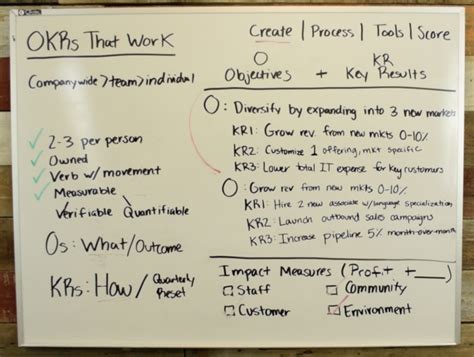 OKRs THAT WORK
Companywide > team > individual
2-3 per person
Owned
Verb w/ movement
Measurable
Verifiable Quantifiable
Os: What/Outcome
KRs: How/ Quarterly
Reset
Create | Process | Tools | Score
O KR
Objectives + Key Results
O: Diversify by expanding into 3 new markets
KR1: Grow rev. from new mkts 0-10%
KR2: Customize 1 offering, mkt specific
KR3: Lower total IT expense for key customers
O: Grow rev from new mkts 0-10%
KR1: Hire 2 new associate w/language specialization
KR2: Launch outbound sales campaigns
KR3: Increase pipeline 5% month-over-month
Impact Measures (Profit + ___)
Staff Community
Customer Environment